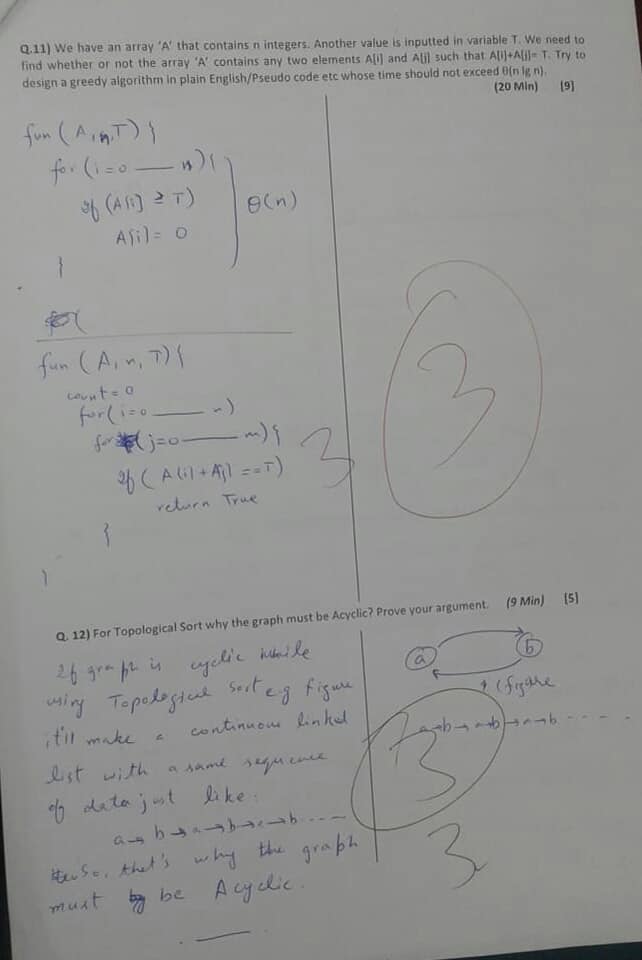 Q.11) We have an array 'A' that contains n integers. Another value is inputted in variable T. We need to
find whether or not the array 'A' contains any two elements A[i] and A[j] such that A[i]+A[j]= T. Try to
design a greedy algorithm in plain English/Pseudo code etc whose time should not exceed θ(n lg n).
(20 Min) [9]
fun (A, n, T) {
for (i=0 — n) {
if (A[i] ≥ T)
A[i] = 0
}
θ(n)
fun (A, n, T) {
count = 0
for (i=0 — n)
for (j=0 — n) {
if (A[i] + A[j] == T)
return True
}
}
3
3
Q. 12) For Topological Sort why the graph must be Acyclic? Prove your argument. (9 Min) [5]
If graph is cyclic while
using Topological Sort e.g figure
it'll make a continuous linked
list with a same sequence
of data just like:
a→b→a→b→a→b----
So, that's why the graph
must be Acyclic.
a b
↑ (figure
a→b→a→b→a→b - - - -
3
3